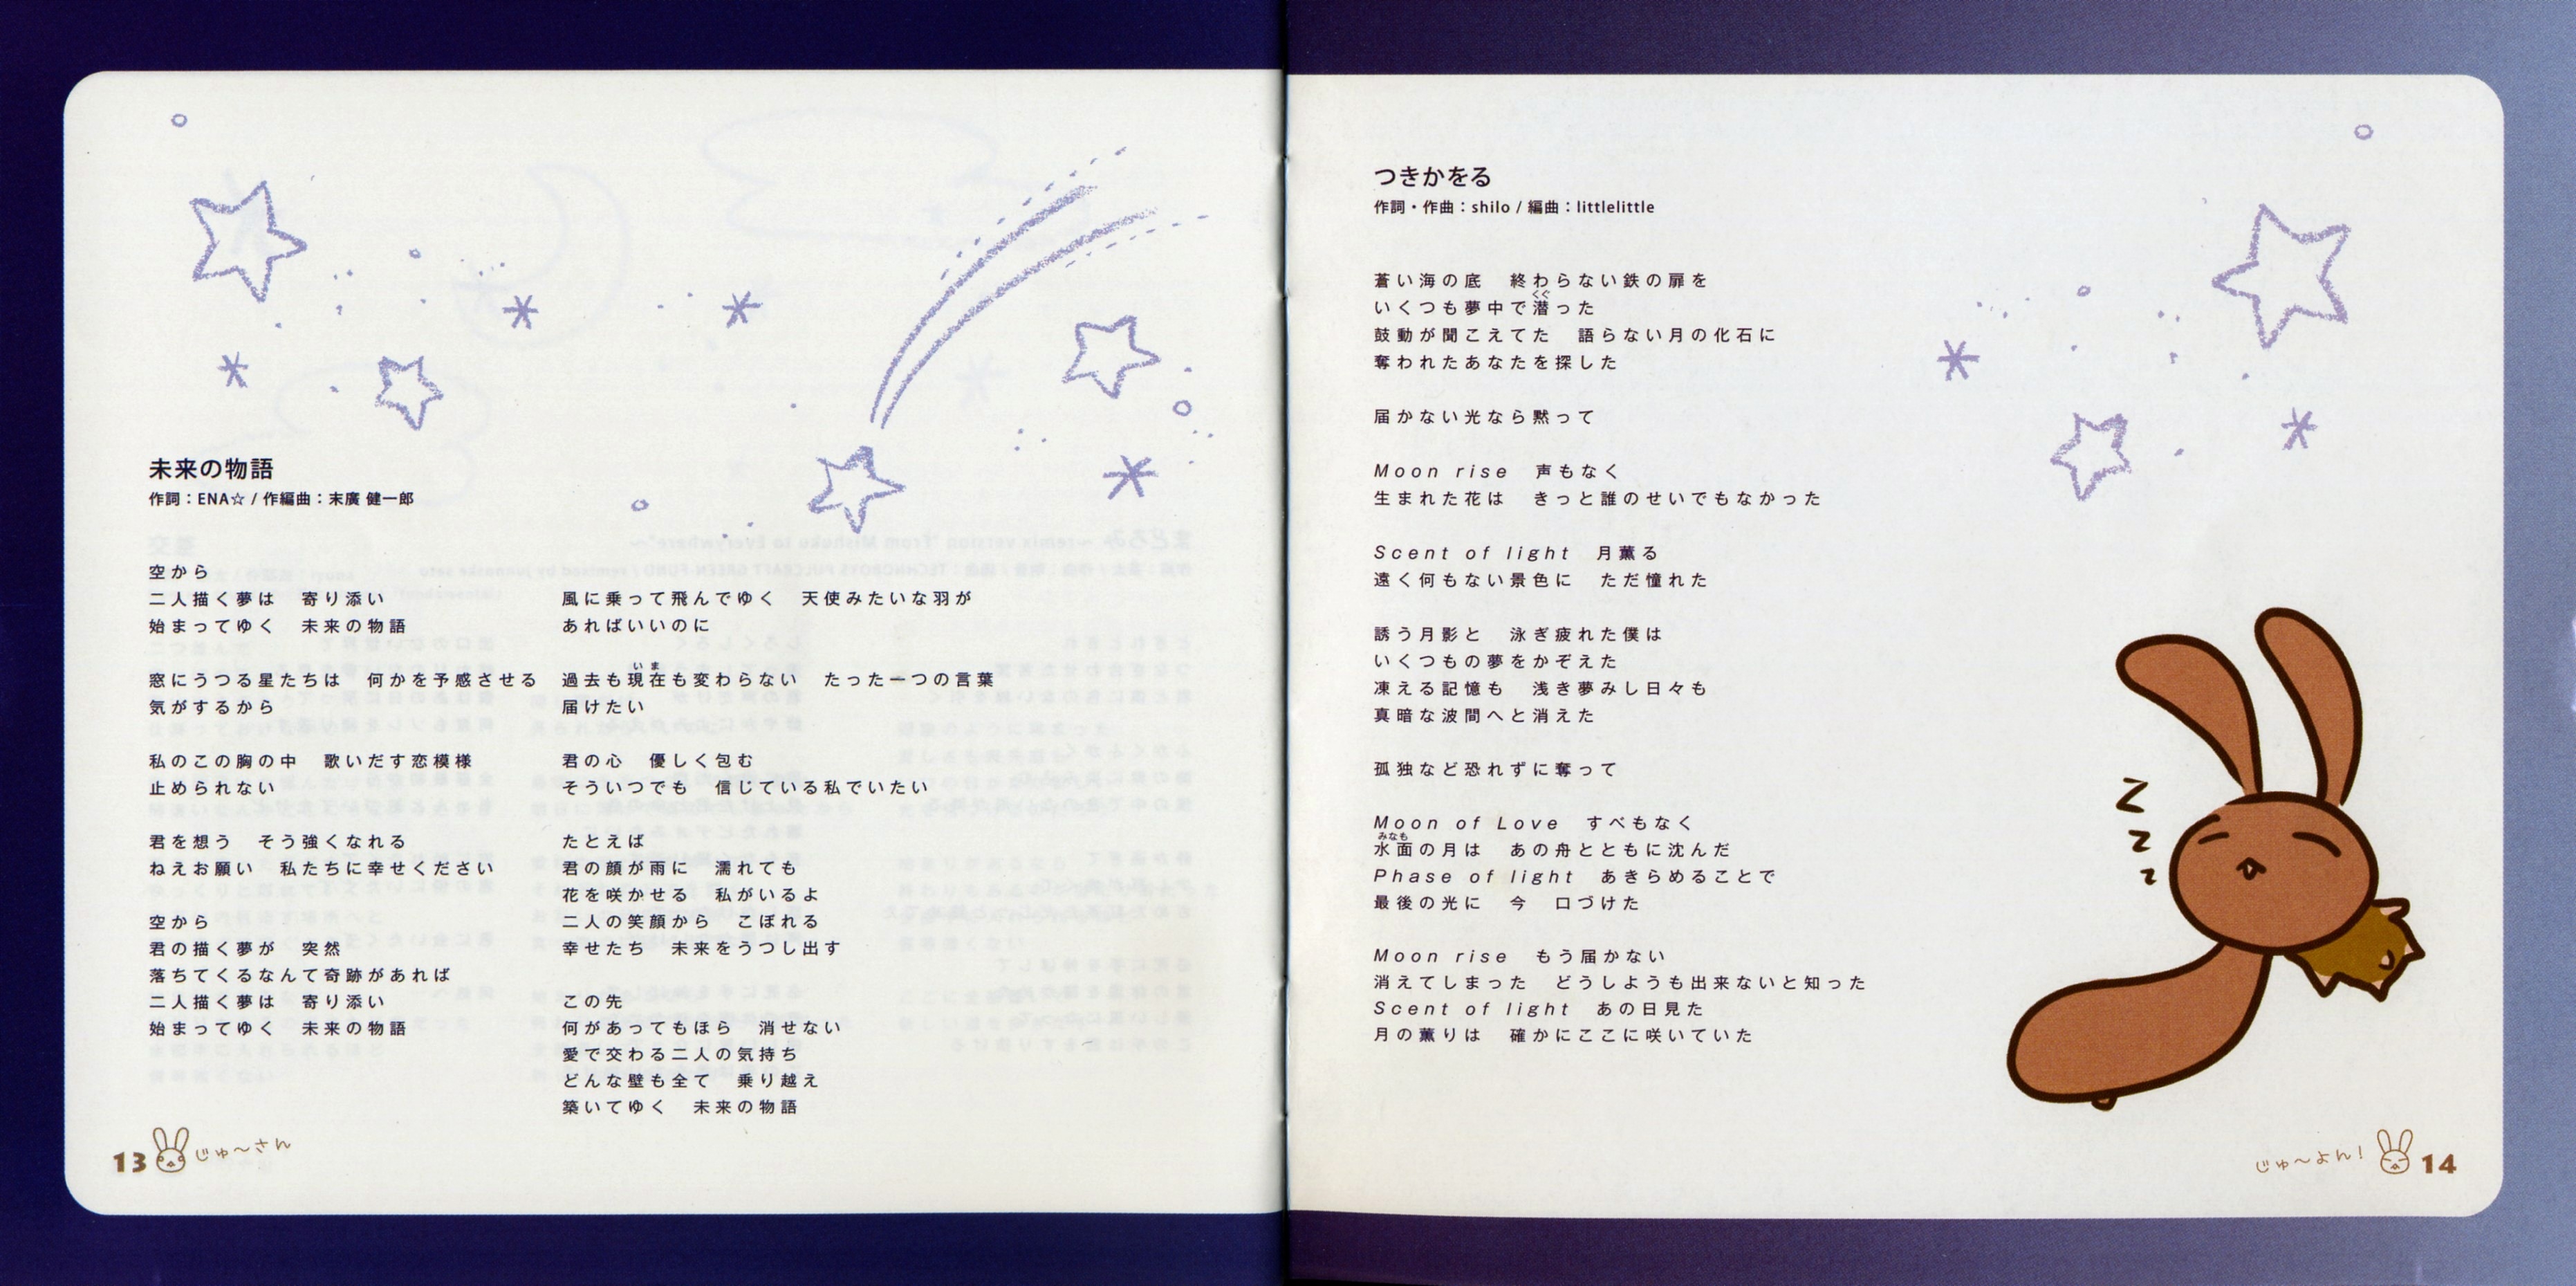 未来の物語
作詞：ENA☆ / 作編曲：末廣 健一郎
空から
二人描く夢は　寄り添い
始まってゆく　未来の物語
窓にうつる星たちは　何かを予感させる
気がするから
私のこの胸の中　歌いだす恋模様
止められない
君を想う　そう強くなれる
ねえお願い　私たちに幸せください
空から
君の描く夢が　突然
落ちてくるなんて奇跡があれば
二人描く夢は　寄り添い
始まってゆく　未来の物語
風に乗って飛んでゆく　天使みたいな羽が
あればいいのに
いま
過去も現在も変わらない　たった一つの言葉
届けたい
君の心　優しく包む
そういつでも　信じている私でいたい
たとえば
君の顔が雨に　濡れても
花を咲かせる　私がいるよ
二人の笑顔から　こぼれる
幸せたち　未来をうつし出す
この先
何があってもほら　消せない
愛で交わる二人の気持ち
どんな壁も全て　乗り越え
築いてゆく　未来の物語
13 じゅ〜さん
つきかをる
作詞・作曲：shilo / 編曲：littlelittle
蒼い海の底　終わらない鉄の扉を
くぐ
いくつも夢中で潜った
鼓動が聞こえてた　語らない月の化石に
奪われたあなたを探した
届かない光なら黙って
Moon rise　声もなく
生まれた花は　きっと誰のせいでもなかった
Scent of light　月薫る
遠く何もない景色に　ただ憧れた
誘う月影と　泳ぎ疲れた僕は
いくつもの夢をかぞえた
凍える記憶も　浅き夢みし日々も
真暗な波間へと消えた
孤独など恐れずに奪って
Moon of Love　すべもなく
みなも
水面の月は　あの舟とともに沈んだ
Phase of light　あきらめることで
最後の光に　今　口づけた
Moon rise　もう届かない
消えてしまった　どうしようも出来ないと知った
Scent of light　あの日見た
月の薫りは　確かにここに咲いていた
z
z
z
じゅ〜よん! 14